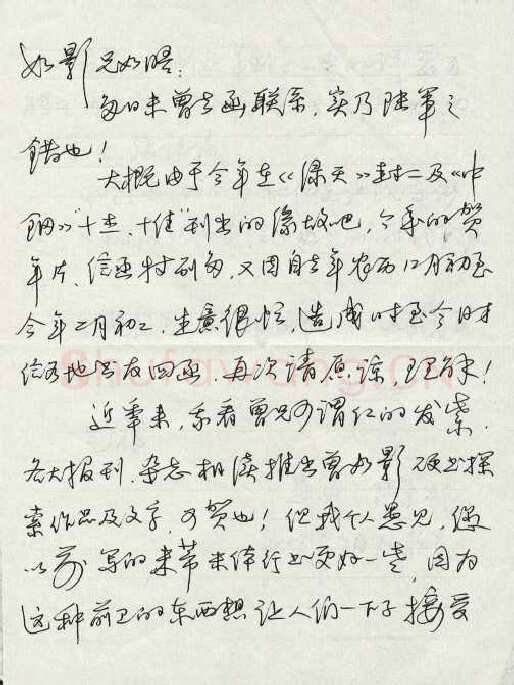 如影兄如晤：
多日来曾去函联系，实乃陆军之
错也！
大概由于今年在《绿天》封二及《中
钢》“十杰、十佳”刊出的缘故吧，今年的贺
年片、信函特别多，又因自去年农历12月初至
今年二月初二，生意很忙，造成时至今日才
给各地书友回函，再次请原谅，理解！
近年来，我看曾兄可谓红的发紫，
各大报刊、杂志相续推出曾如影硬书探
索作品及文字，可贺也！但我个人愚见，您
以前写的米芾米体行书更好一些，因为
这种前卫的东西想让人们一下子接受